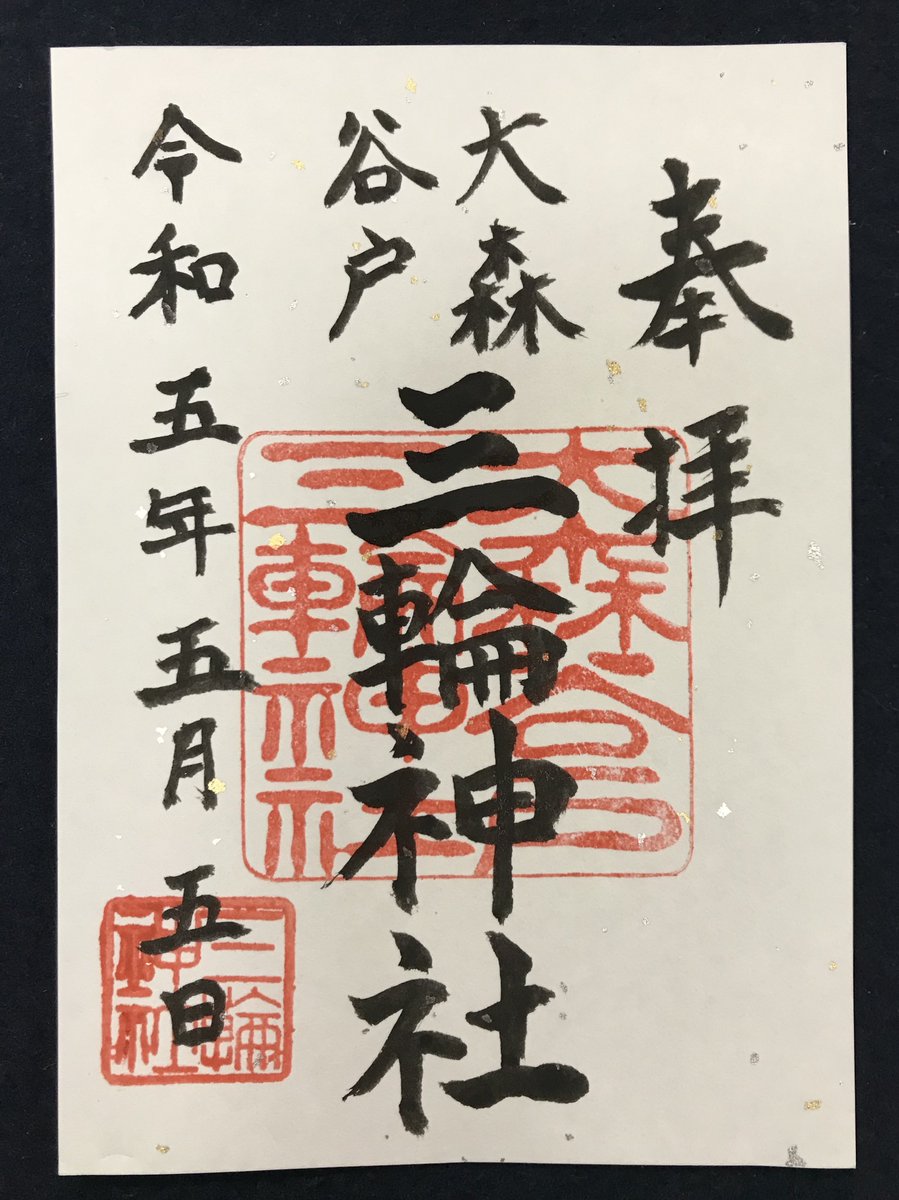 奉拝
大森
谷戸
三輪神社
令和五年五月五日
大森谷戸
三輪神社
三輪
神社